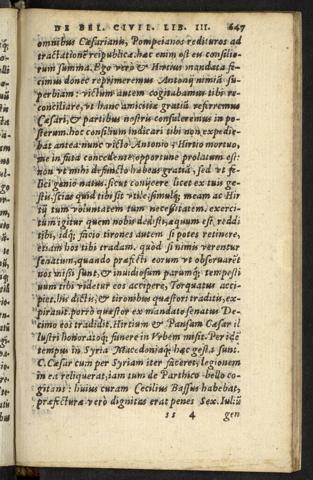 DE BEL. CIVIL. LIB. III. 647
omnibus Cæsarianis, Pompeianos redituros ad
tractationē reipublicæ. hæc enim est eu consilio-
rum summa. Ego verò & Hirtius mandata fe-
cimus donec reprimeremus Antonij nimiā su-
perbiam: victum autem cogitabamus tibi re-
conciliare, vt hanc amicitiæ gratiā referremus
Cæsari, & partibus nostris consuleremus in po-
sterum. hoc consilium indicari tibi non expedie-
bat antea: nunc victo Antonio, Hirtio mortuo,
me in fata concedente, opportune prolatum est:
non vt mihi defuncto habeas gratiā, sed vt fe-
lici genio natus, sicut conijcere licet ex tuis ge-
stis, scias quid tibi sit vtile. simulq́; meam ac Hir
tij tum voluntatem tum necessitatem. exerci-
tum igitur quem nobis dedisti, æquum est reddi
tibi, idq́; facio. tirones autem si potes retinere,
etiam hos tibi tradam. quòd si nimis verentur
senatum, quando præfecti eorum vt obseruarēt
nos missi sunt, & inuidiosum parumq́; tempesti
uum tibi videtur eos accipere, Torquatus acci-
piet. his dictis, & tironibus quæstori traditis, ex-
pirauit. porrò quæstor ex mandato senatus De-
cimo eos tradidit. Hirtium & Pansam Cæsar il
lustri honoratoq́; funere in Vrbem misit. Per idē
tempus in Syria Macedoniaq́; hæc gesta sunt.
C. Cæsar cum per Syriam iter faceret, legionem
in ea reliquerat, iam tum de Parthico bello co-
gitans: huius curam Cecilius Bassus habebat,
præfecturæ verò dignitas erat penes Sex. Iuliū
ss 4 gen